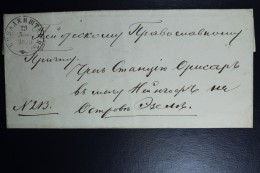 Православному
Причту
Чрез Станцію Орисаръ
в мызу Нейгофъ на
Островѣ Эзелѣ
№ 213.